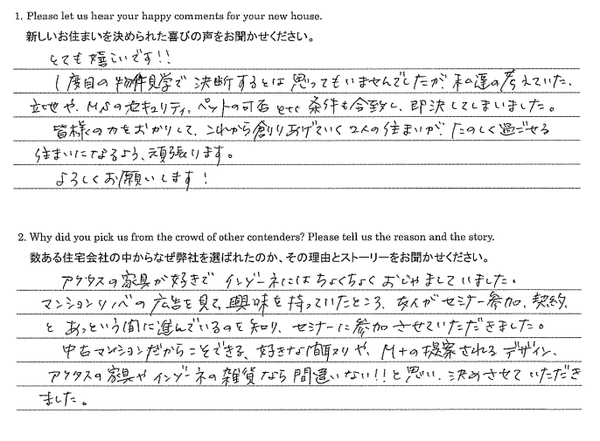 1. Please let us hear your happy comments for your new house.
新しいお住まいを決められた喜びの声をお聞かせください。
とても嬉しいです!!
1度目の物件見学で決断するとは思ってもいませんでしたが、私達の考えていた、
立地や、MSのセキュリティ、ペットの可否 etc 条件も合致し、即決してしまいました。
皆様の力をおかりして、これから創りあげていく2人の住まいが、たのしく過ごせる
住まいになるよう、頑張ります。
よろしくお願いします!
2. Why did you pick us from the crowd of other contenders? Please tell us the reason and the story.
数ある住宅会社の中からなぜ弊社を選ばれたのか、その理由とストーリーをお聞かせください。
アクタスの家具が好きで インゾーネにはちょくちょくおじゃましていました。
マンションリノベの広告を見て、興味を持っていたところ、友人がセミナー参加、契約、
と あっという間に進んでいるのを知り、セミナーに参加させていただきました。
中古マンションだからこそできる、好きな間取りや、M+の提案される デザイン、
アクタスの家具やインゾーネの雑貨なら間違いない!!と思い、決めさせていただき
ました。